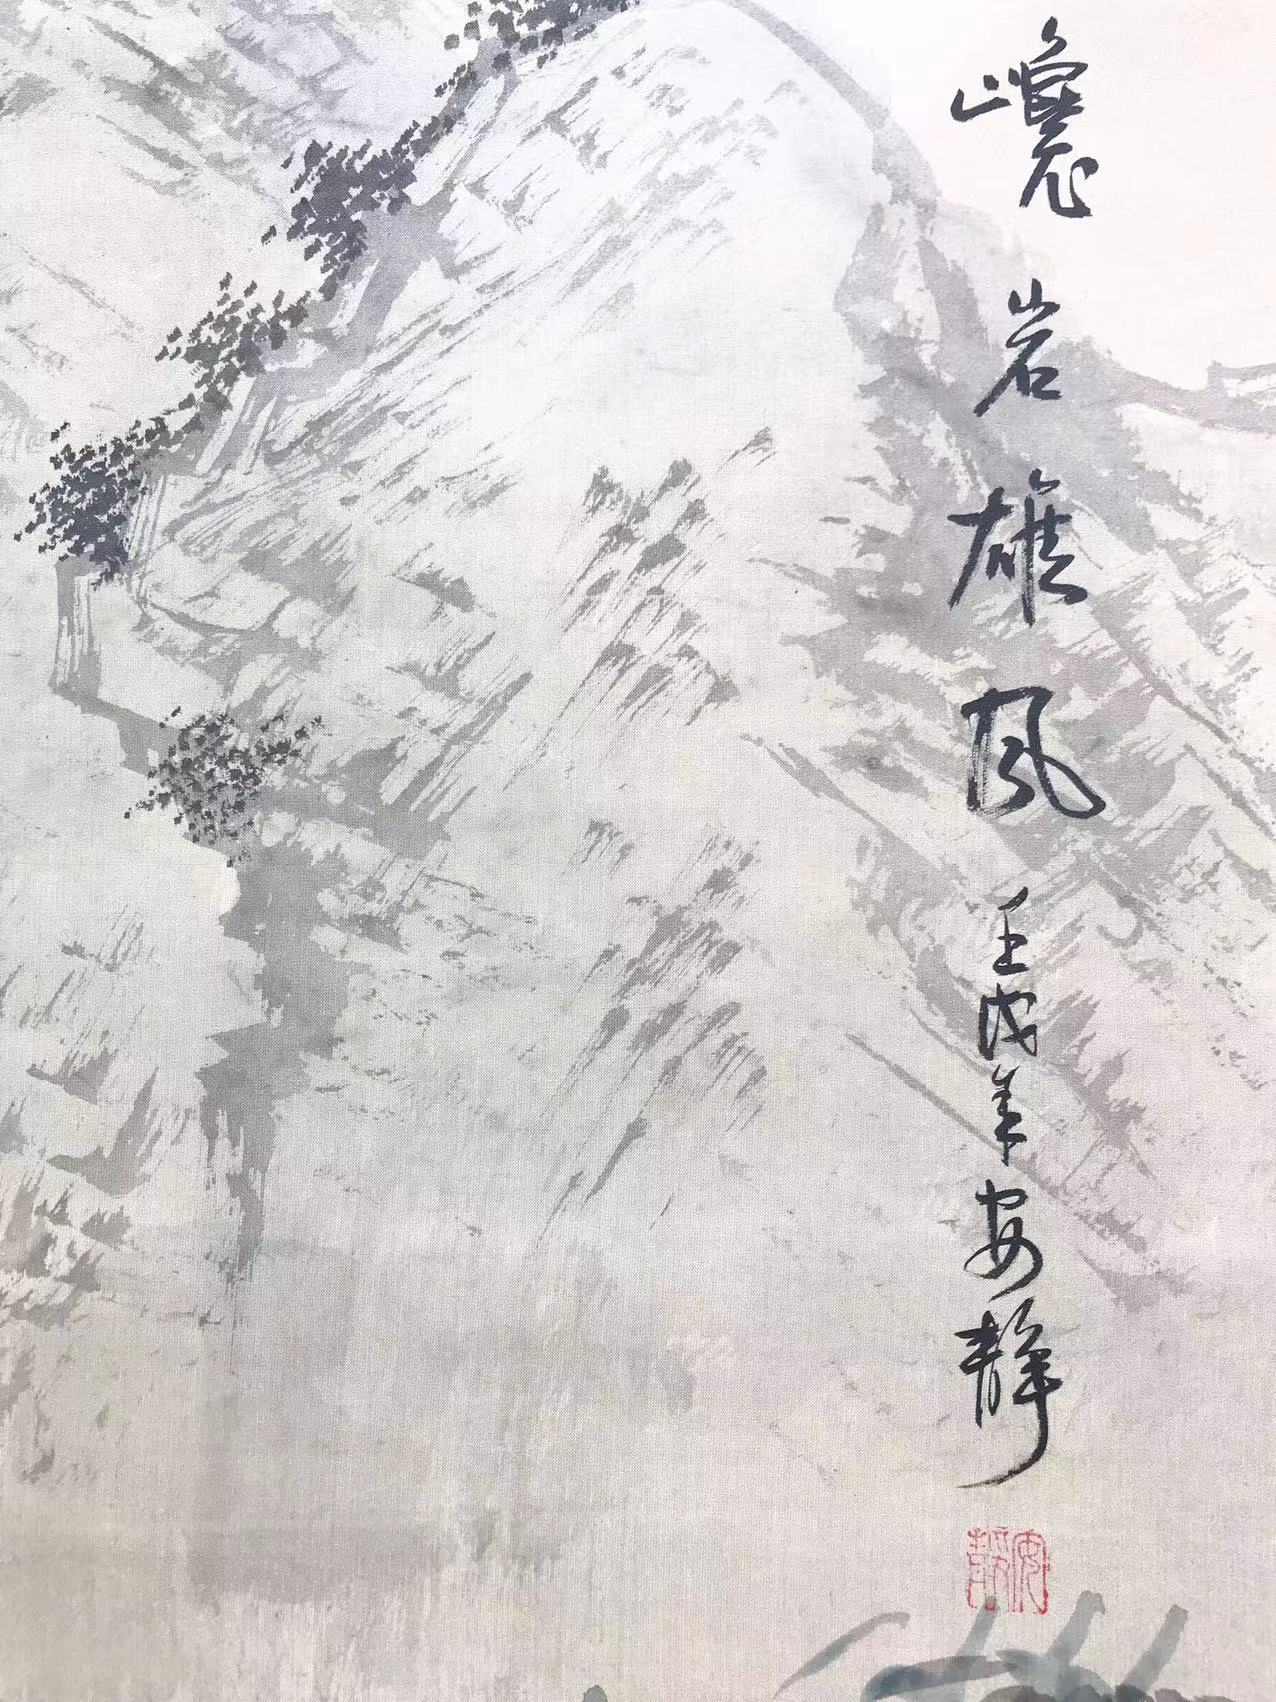 巉岩雄风 壬戌年安静
安静